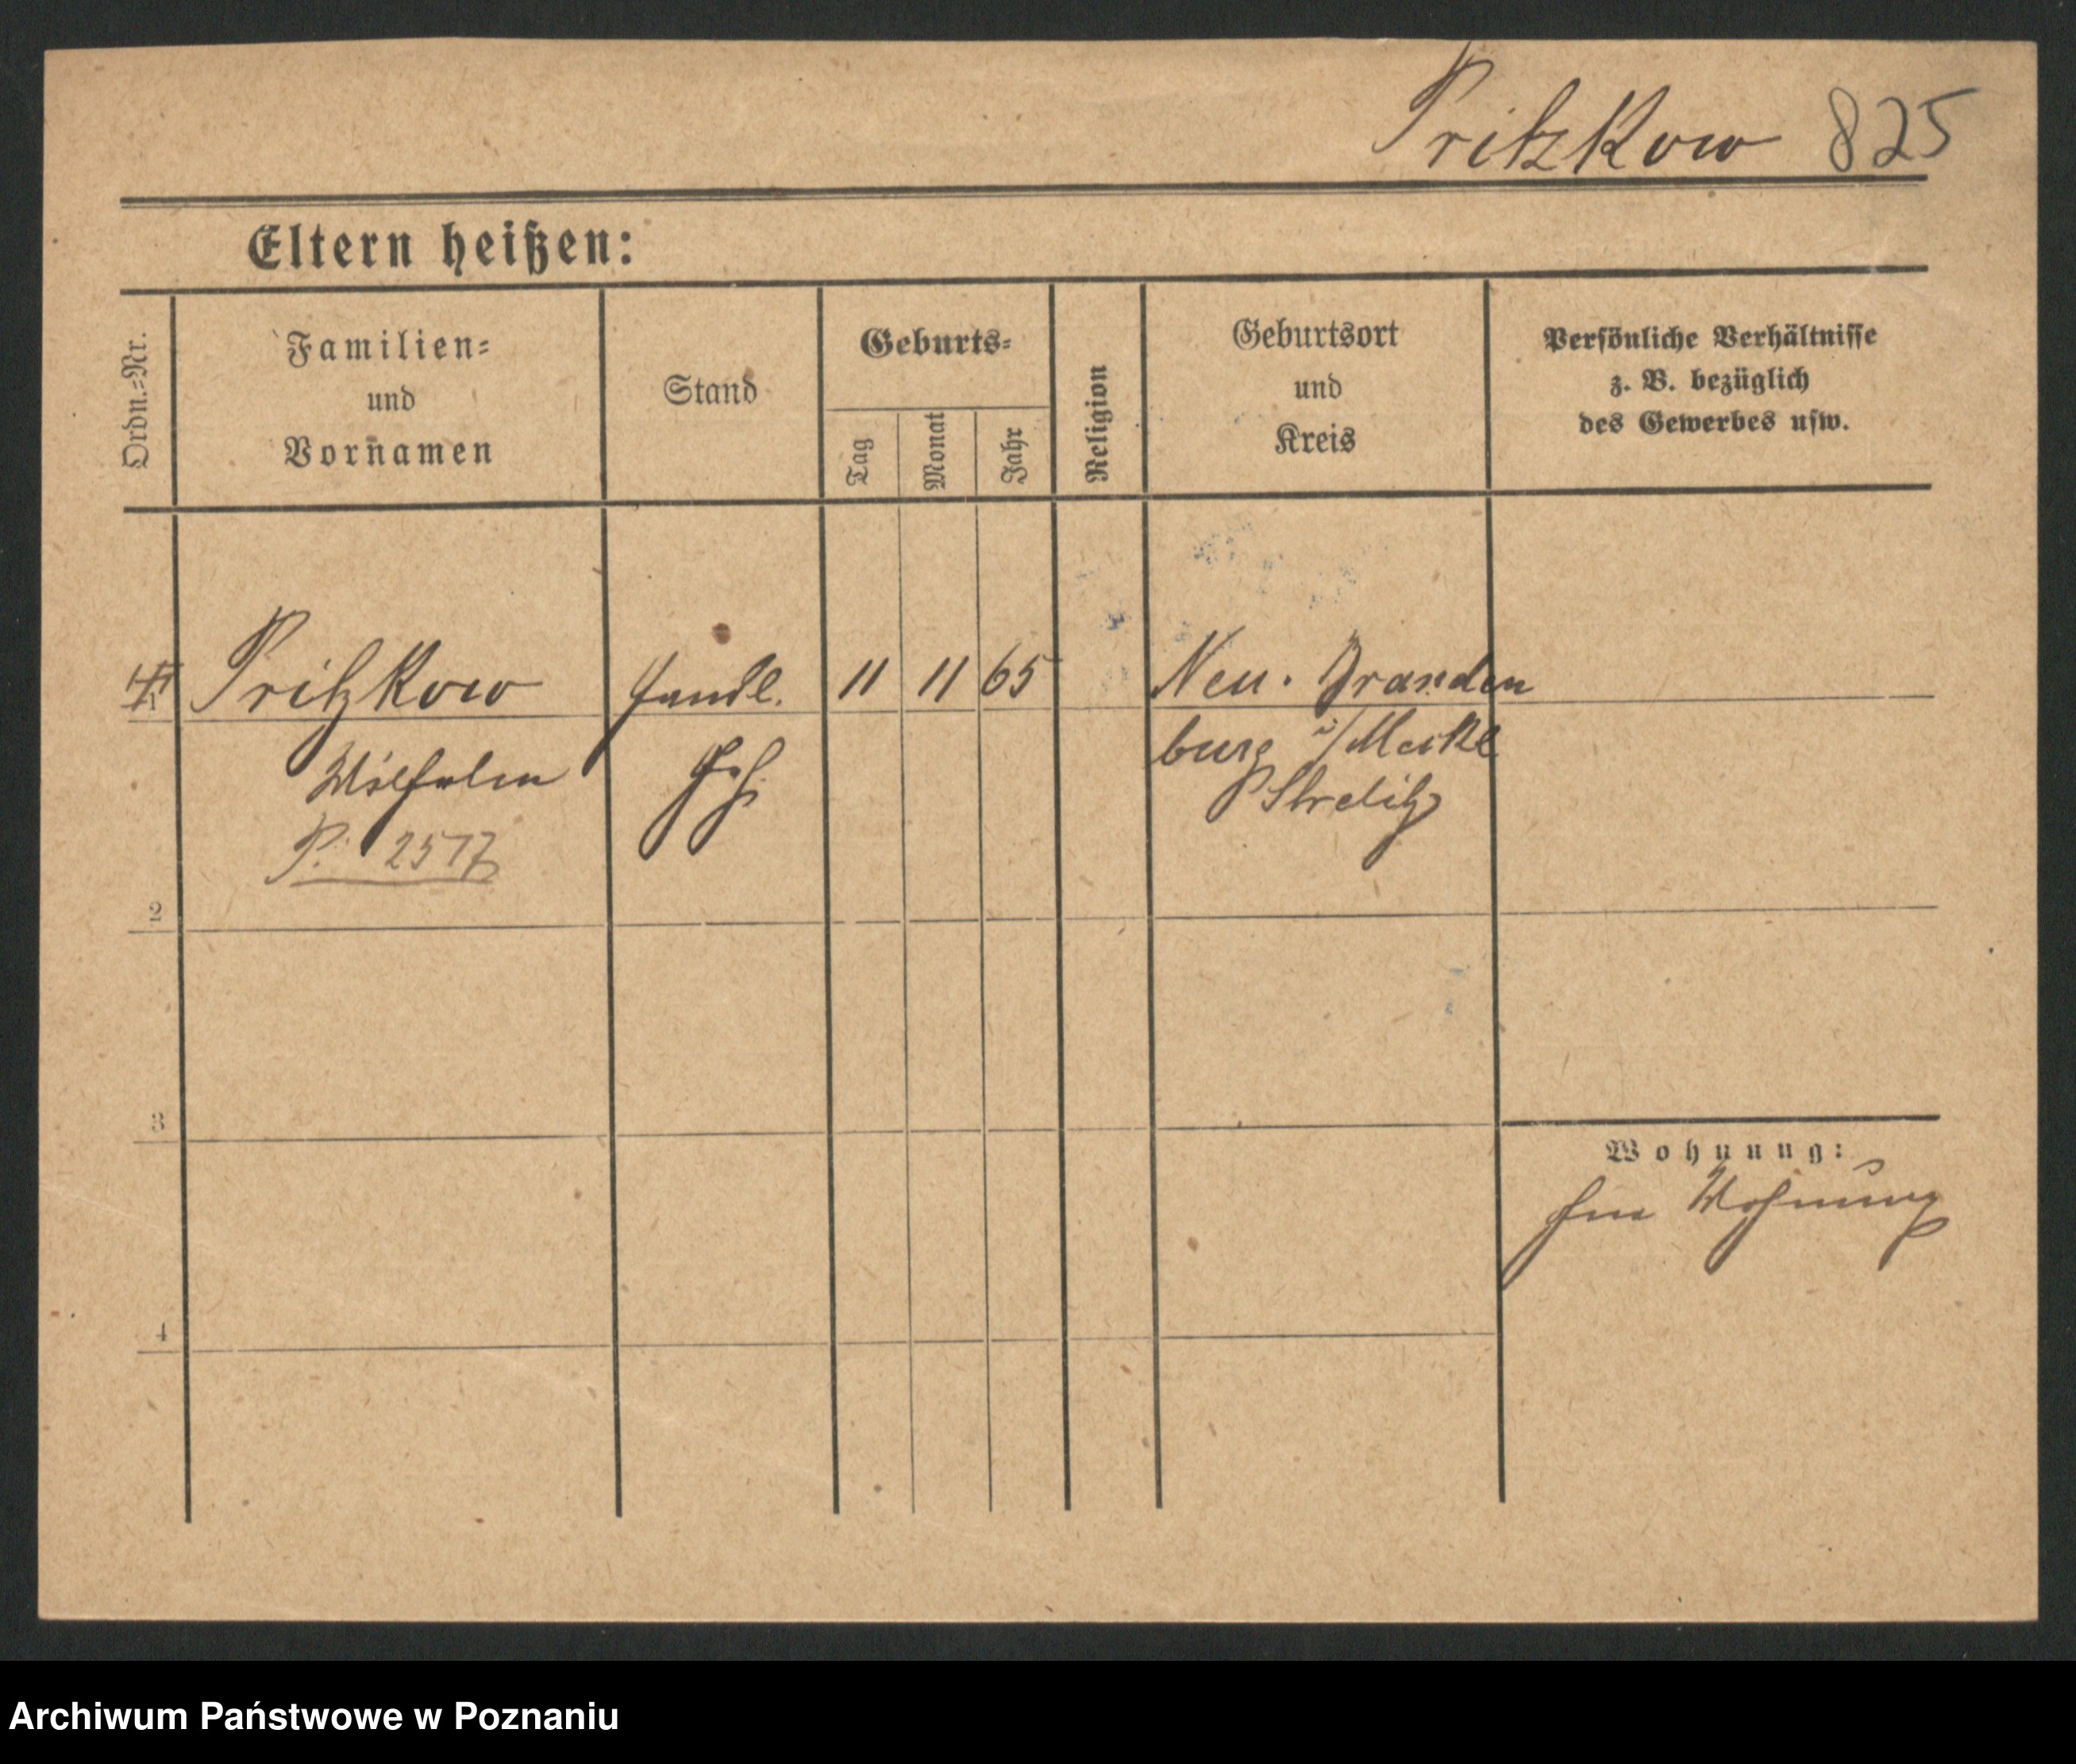 Pritzkow 825
Eltern heißen:
Ordn.=Nr.
Familien=
und
Vornamen
Stand
Geburts=
Tag
Monat
Jahr
Religion
Geburtsort
und
Kreis
Persönliche Verhältnisse
z. B. bezüglich
des Gewerbes usw.
Pritzkow Handl. 11 11 65 Neu-Branden
burg i/Meckl
Wilhelm Geh. Strelitz
P. 2517
2
3
4
Wohnung:
Wohnung
Archiwum Państwowe w Poznaniu